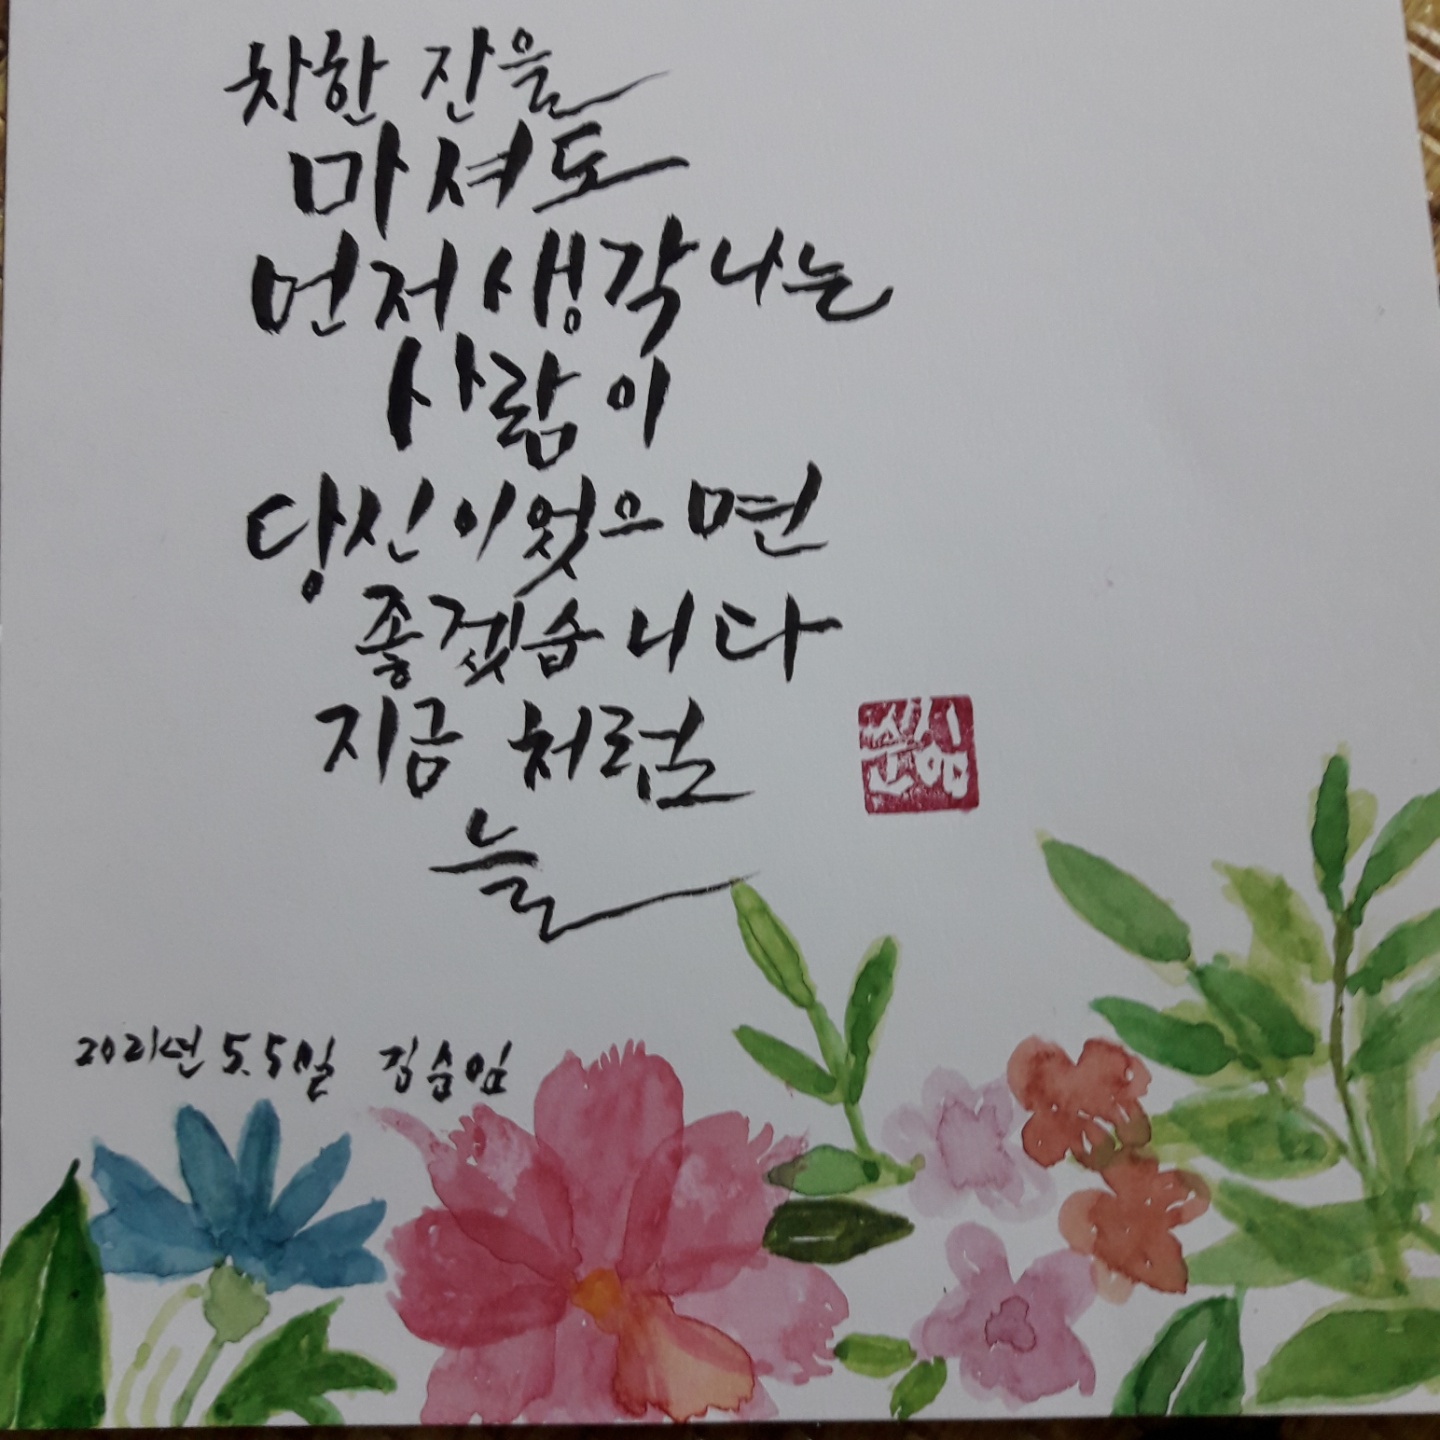 차한 잔을
마셔도
먼저 생각나는
사람이
당신이었으면
좋겠습니다
지금 처럼
늘
2021년 5.5일 김순임
순임